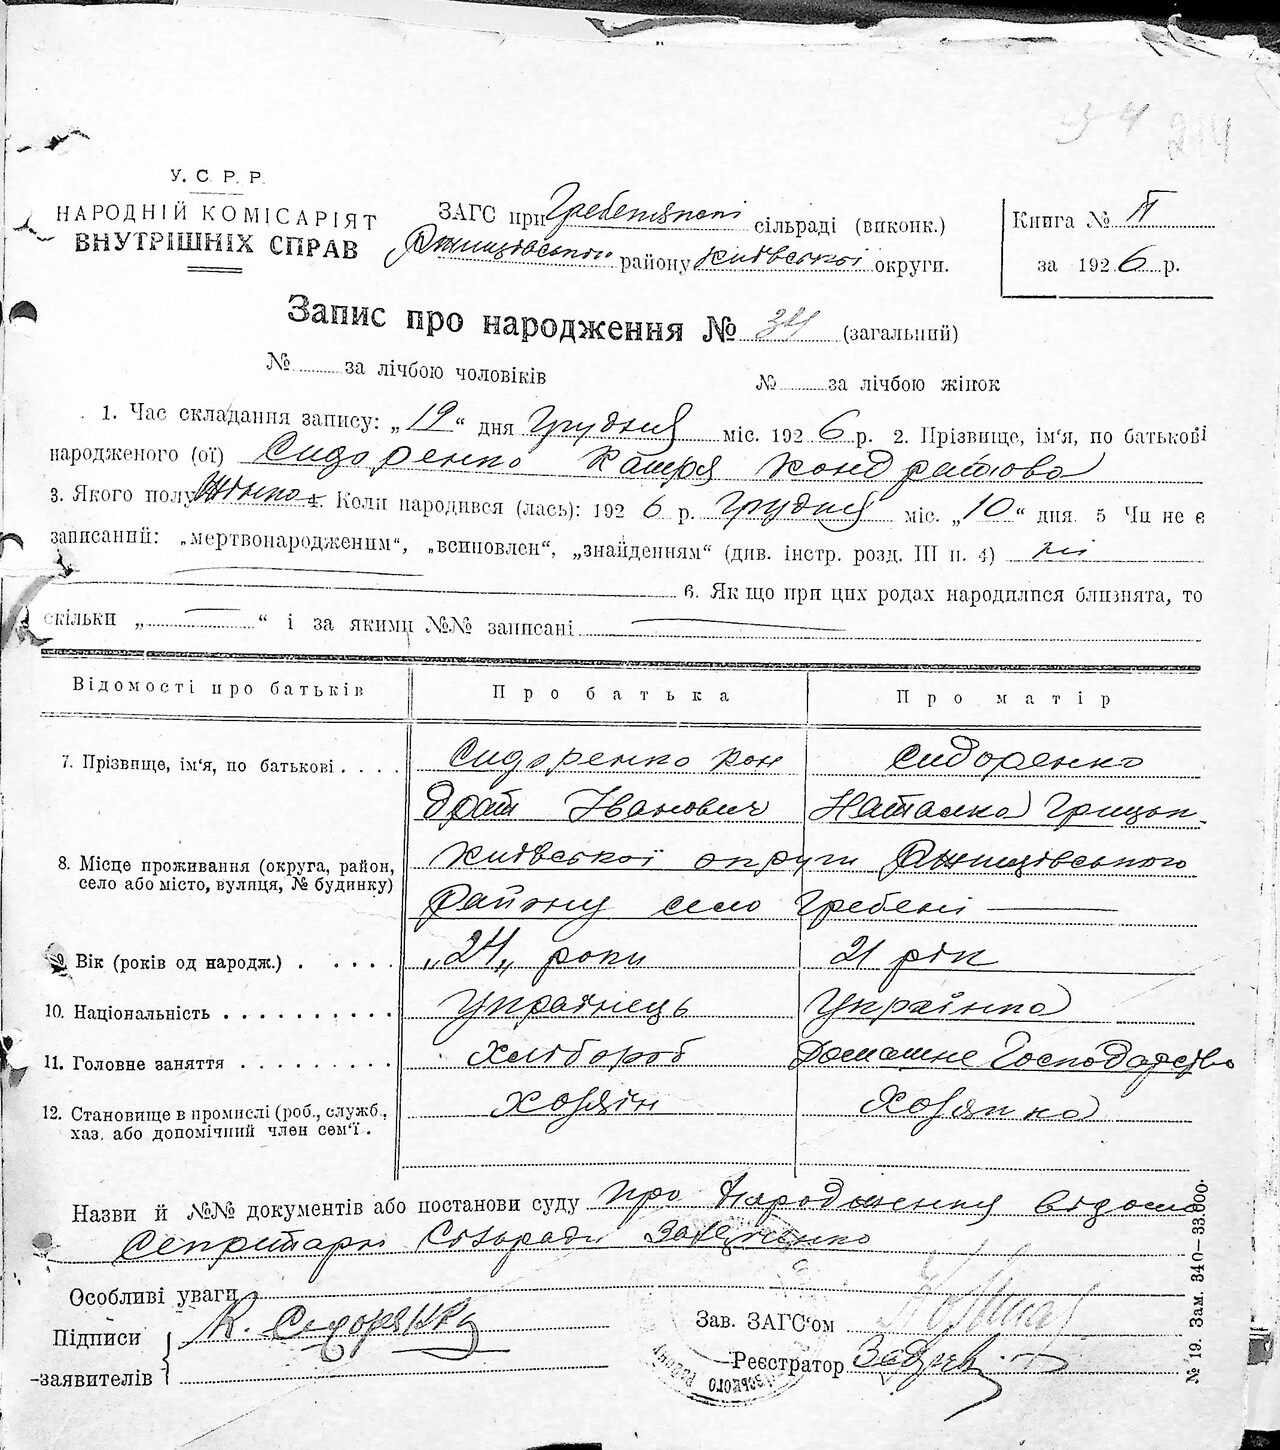 214
У. С. Р. Р.
НАРОДНІЙ КОМІСАРІЯТ
ВНУТРІШНІХ СПРАВ
ЗАГС при сільраді (виконк.)
Ржищівського району Київської округи.
Книга № II
за 1926 р.
Запис про народження № 34 (загальний)
№ за лічбою чоловіків № за лічбою жінок
1. Час складання запису: „19“ дня Грудня міс. 1926 р. 2. Прізвище, ім'я, по батькові
народженого (ої) Сидоренко Катря Кондратова
3. Якого полу Жіноч. 4. Коли народився (лась): 1926 р. Грудня міс. „10“ дня. 5 Чи не є
записаний: „мертвонародженим“, „всиновлен“, „знайденням“ (див. інстр. розд. III п. 4) ні
6. Як що при цих родах народилися близнята, то
скільки „ “ і за якими №№ записані
Відомості про батьків Про батька Про матір
7. Прізвище, ім'я, по батькові Сидоренко Кон Сидоренко
драт Іванович Наталка Грицьк.
8. Місце проживання (округа, район, село або місто, вулиця, № будинку) Київської округи Ржищівського
Району село Гребені
9. Вік (років од народж.) „24„ роки 21 рік
10. Національність Українець Українка
11. Головне заняття Хлібороб Домашнє Господарство
12. Становище в промислі (роб., служб., хаз. або допомічний член сем'ї. Хозяін Хозяйка
Назви й №№ документів або постанови суду про Народження відомо
Секретарю Сільради
Особливі уваги
Підписи
заявителів
К. Сидоренко
Зав. ЗАГС‘ом
Реєстратор
№ 19. Зам. 340—33.000.